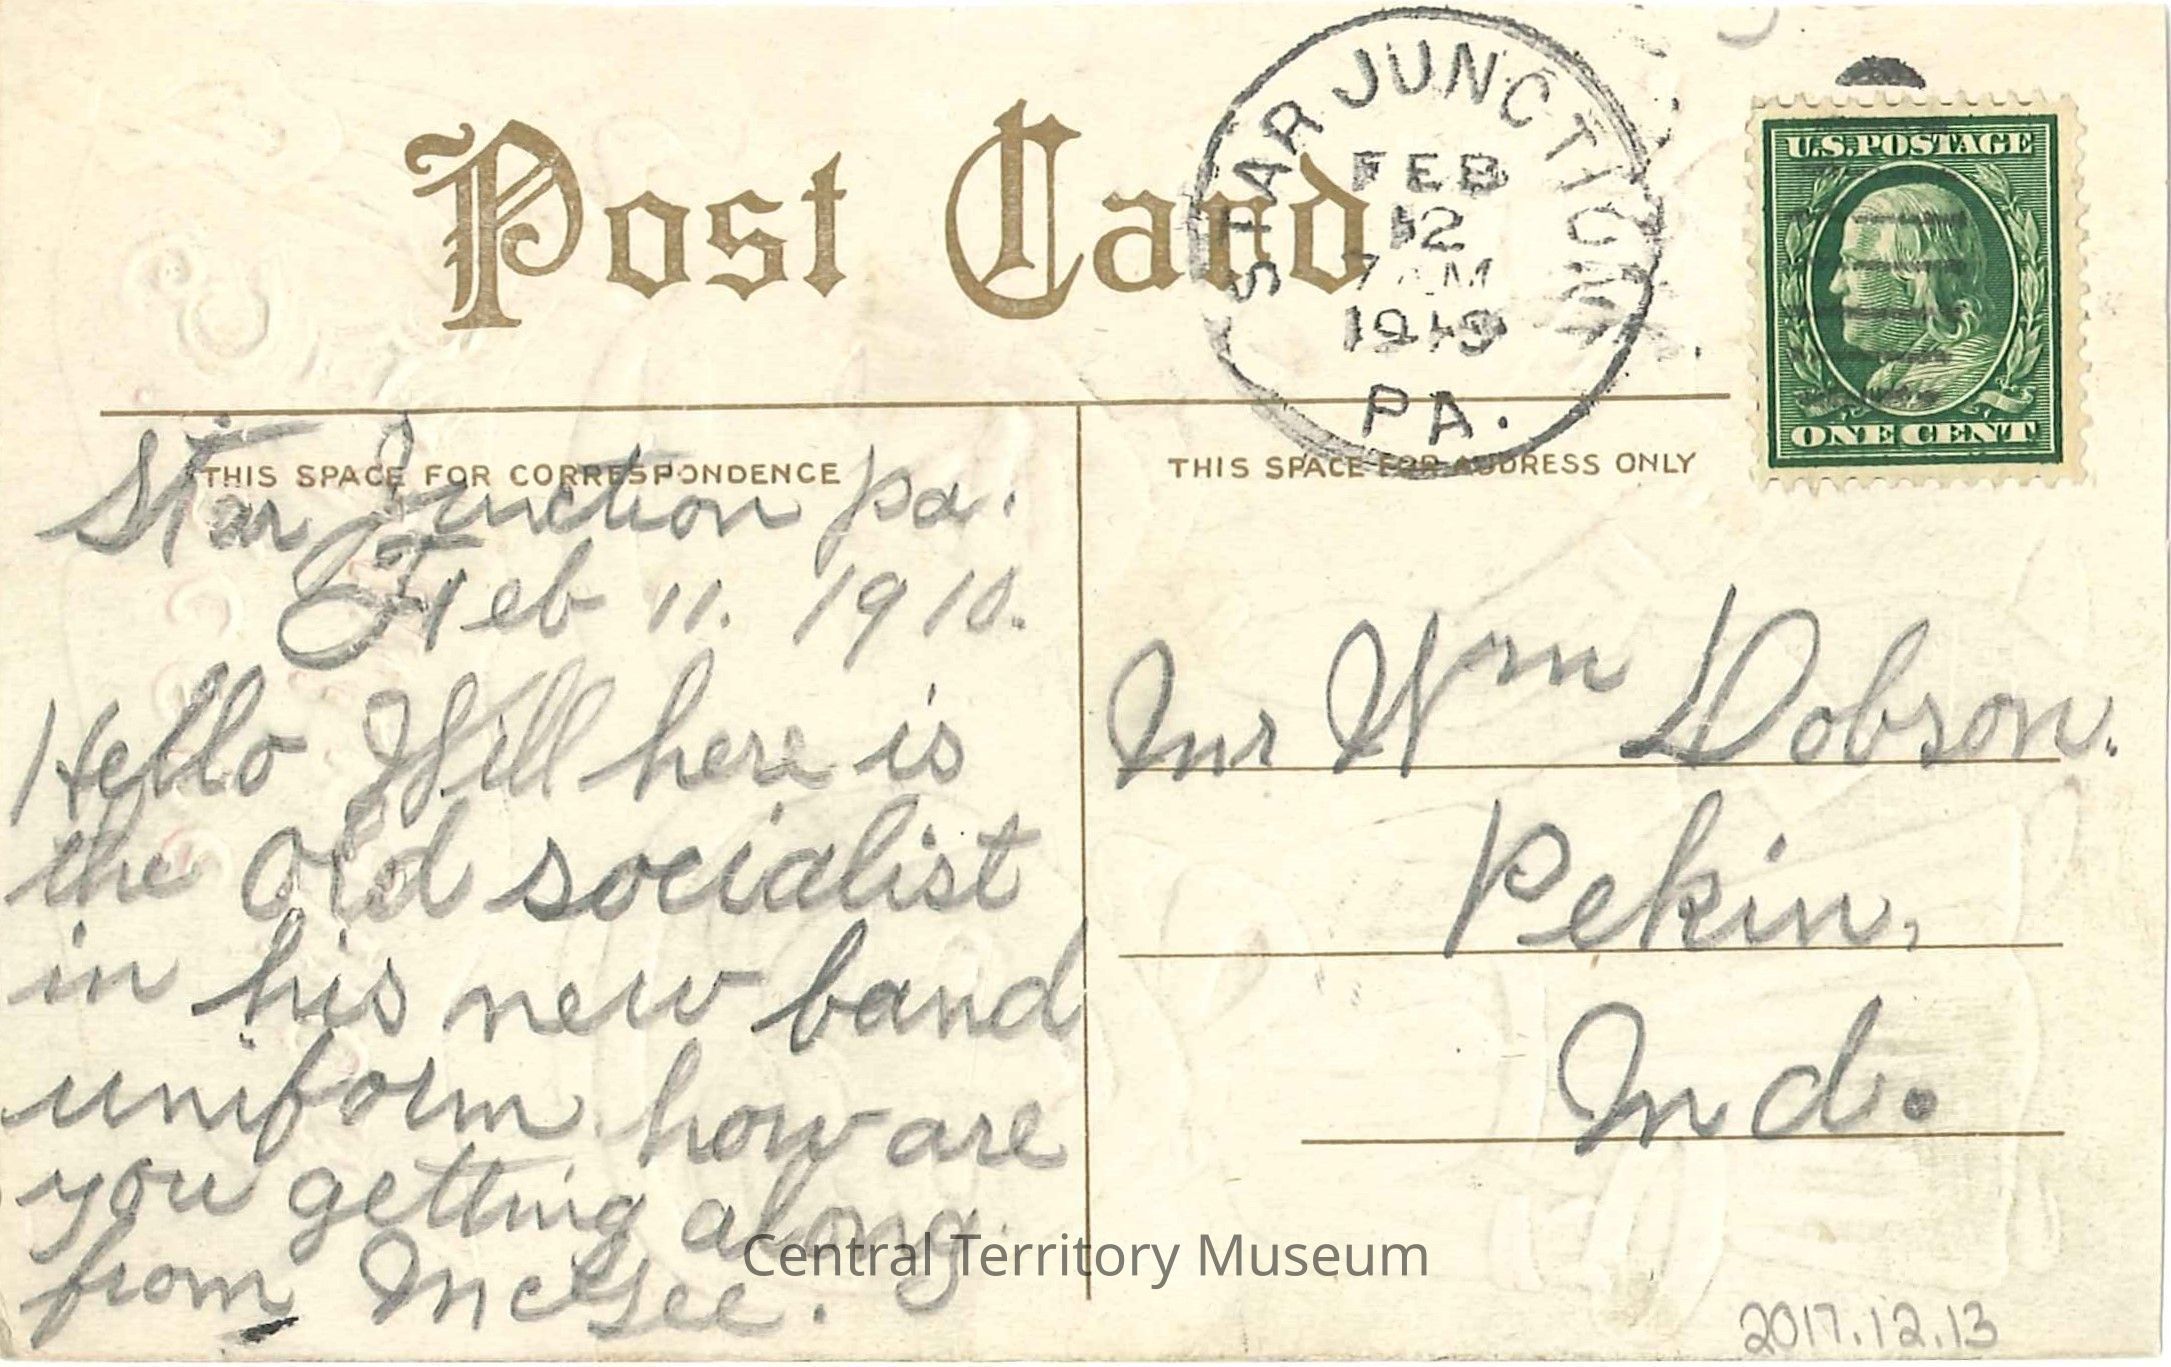 Post Card
STAR JUNCTION
FEB
12
7 AM
PA.
U.S. POSTAGE
ONE CENT
THIS SPACE FOR CORRESPONDENCE
THIS SPACE FOR ADDRESS ONLY
Star Junction Pa.
Feb 11. 1910.
Hello Will here is
the Old socialist
in his new band
uniform. how are
you getting along.
from McGee.
Mr Wm Dobson.
Pekin,
Md.
Central Territory Museum
2017.12.13